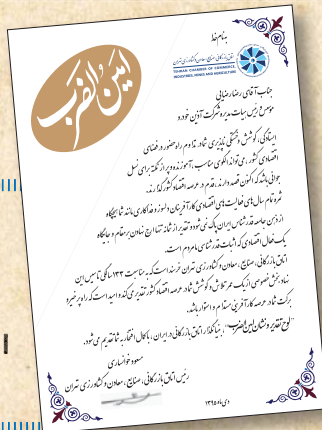 به نام خدا
امین الضرب
اتاق بازرگانی، صنایع، معادن و کشاورزی تهران
TEHRAN CHAMBER OF COMMERCE
INDUSTRIES, MINES AND AGRICULTURE
جناب آقای رضا رضایی
موسس و رئیس هیات مدیره شرکت آذین خودرو
ایستادگی، کوشش و خستگی ناپذیری شما، تداوم راه حضور در فضای
اقتصادی کشور، می‌تواند الگوی مناسب، آموزنده و پر از نکته برای نسل
جوانی باشد که اکنون قصد دارند، قدم در عرصه اقتصاد کشور گذارند.
ثمره تمام سال‌های فعالیت‌های اقتصادی کارآفرینان دلسوز و فداکاری مانند شما هیچگاه
از ذهن جامعه قدرشناس ایران پاک نمی‌شود و تقدیر از شما نه تنها ارج نهادن بر مقام و جایگاه
یک فعال اقتصادی که اثبات قدرشناسی ما مردم است.
اتاق بازرگانی، صنایع، معادن و کشاورزی تهران خرسند است که به مناسبت ۱۳۳ سالگی تاسیس این
نهاد بخش خصوصی از یک عمر تلاش و کوشش شما در عرصه اقتصاد کشور تقدیر می‌کند و امید است که راه پر خیر و
برکت شما در عرصه کارآفرینی مستدام و استوار باشد.
"لوح تقدیر و نشان امین الضرب"، بنیانگذار اتاق بازرگانی در ایران، با کمال افتخار به شما تقدیم می‌شود.
مسعود خوانساری
رئیس اتاق بازرگانی، صنایع، معادن و کشاورزی تهران
دی ماه ۱۳۹۵